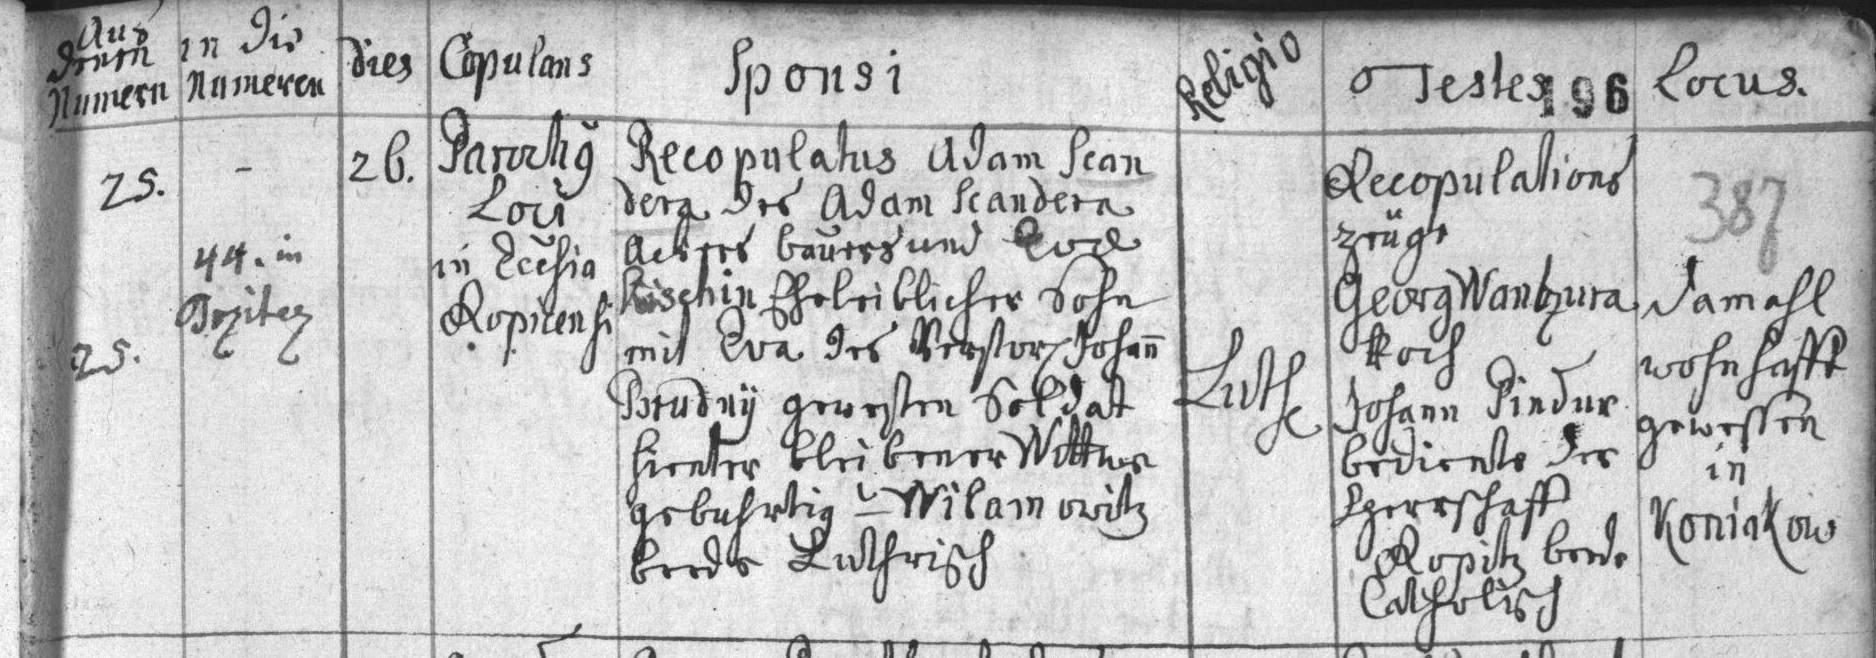 Aus denen Numern
in die Numeren
dies
Copulans
Sponsi
Religio
Testes
196
Locus.
25.
-
44. in
25.
26.
Parochy
Loci
in Ecclesia
Ropicensi
Recopulatus Adam Scan
dera des Adam Scandera
Ackers bauers und Evae
Kischin Eheleiblicher Sohn
mit Eva des Verstor Johann
Brudny gewesten Soldat
hienter bleibener Wittwe
gebuhrtig v Wilamowitz
beede Luthrisch
Luth
Recopulations
zeüge
Georg Wantzura
Koch
Johann Pindur
bediente der
Herrschafft
Ropitz beede
Catholisch
387
damahl
wohnhafft
gewessen
in
Koniakow